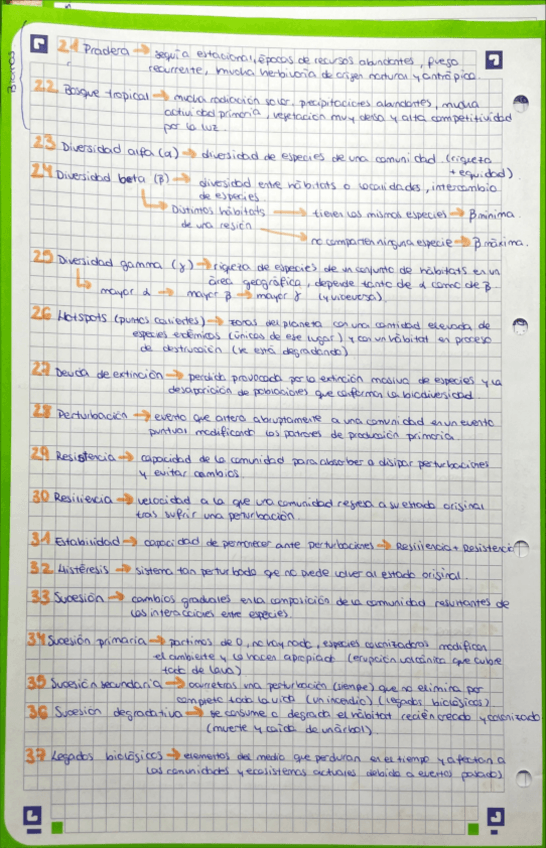 Biomas
21 Pradera → sequía estacional, épocas de recursos abundantes, fuego
recurrente, mucha herbivoría de origen natural y antrópico.
22 Bosque tropical → mucha radiación solar, precipitaciones abundantes, mucha
actividad primaria, vegetación muy densa y alta competitividad
por la luz.
23 Diversidad alfa (α) → diversidad de especies de una comunidad (riqueza
+ equidad)
24 Diversidad beta (β) → diversidad entre hábitats o localidades, intercambio
de especies.
Distintos hábitats → tienen las mismas especies → β mínima.
de una región
→ no comparten ninguna especie → β máxima.
25 Diversidad gamma (γ) → riqueza de especies de un conjunto de hábitats en un
área geográfica, depende tanto de α como de β
mayor α → mayor β → mayor γ (y viceversa)
26 Hotspots (puntos calientes) → zonas del planeta con una cantidad elevada de
especies endémicas (únicas de ese lugar) y con un hábitat en proceso
de destrucción (se está degradando)
27 Deuda de extinción → perdida provocada por la extinción masiva de especies y la
desaparición de poblaciones que conforman la biodiversidad
28 Perturbación → evento que altera abruptamente a una comunidad en un evento
puntual modificando los patrones de producción primaria.
29 Resistencia → capacidad de la comunidad para absorber o disipar perturbaciones
y evitar cambios.
30 Resiliencia → velocidad a la que una comunidad regresa a su estado original
tras sufrir una perturbación.
31 Estabilidad → capacidad de permanecer ante perturbaciones → Resiliencia + Resistencia
32 Histéresis → sistema tan perturbado que no puede volver al estado original.
33 Sucesión → cambios graduales en la composición de la comunidad resultantes de
las interacciones entre especies.
34 Sucesión primaria → partimos de 0, no hay nada, especies colonizadoras modifican
el ambiente y lo hacen apropiado (erupción volcánica que cubre
todo de lava)
35 Sucesión secundaria → ocurre tras una perturbación que no elimina por
completo toda la vida (un incendio) (legados biológicos)
36 Sucesión degradativa → se consume o degrada el hábitat recién creado y colonizado
(muerte y caída de un árbol).
37 Legados biológicos → elementos del medio que perduran en el tiempo y afectan a
las comunidades y ecosistemas actuales debido a eventos pasados